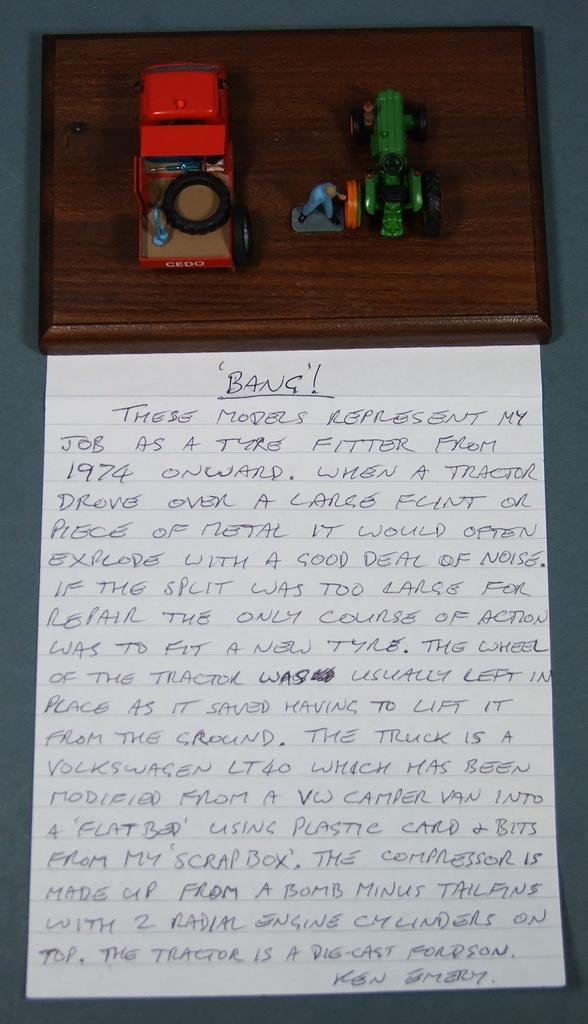 CEDO
'BANG'!
THESE MODELS REPRESENT MY
JOB AS A TYRE FITTER FROM
1974 ONWARD. WHEN A TRACTOR
DROVE OVER A LARGE FLINT OR
PIECE OF METAL IT WOULD OFTEN
EXPLODE WITH A GOOD DEAL OF NOISE.
IF THE SPLIT WAS TOO LARGE FOR
REPAIR THE ONLY COURSE OF ACTION
WAS TO FIT A NEW TYRE. THE WHEEL
OF THE TRACTOR WAS USUALLY LEFT IN
PLACE AS IT SAVED HAVING TO LIFT IT
FROM THE GROUND. THE TRUCK IS A
VOLKSWAGEN LT40 WHICH HAS BEEN
MODIFIED FROM A VW CAMPER VAN INTO
A 'FLAT BED' USING PLASTIC CARD & BITS
FROM MY 'SCRAP BOX'. THE COMPRESSOR IS
MADE UP FROM A BOMB MINUS TAILFINS
WITH 2 RADIAL ENGINE CYLINDERS ON
TOP. THE TRACTOR IS A DIE-CAST FORDSON.
KEN EMERY.